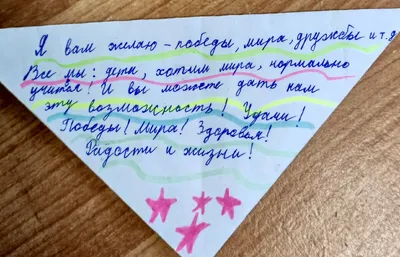 Я вам желаю - победы, мира, дружбы и т.д
Все мы: дети, хотим мира, нормально
учится! И вы можете дать нам
эту возможность! Удачи!
Победы! Мира! Здоровья!
Радости и жизни!